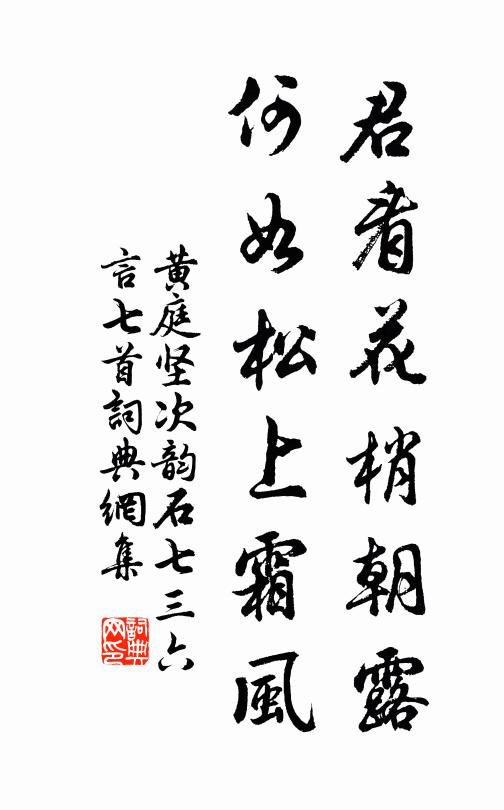 君看花梢朝露
何如松上霜風
黄庭坚次韵石七三六
言七首詞典網集
詞典网印